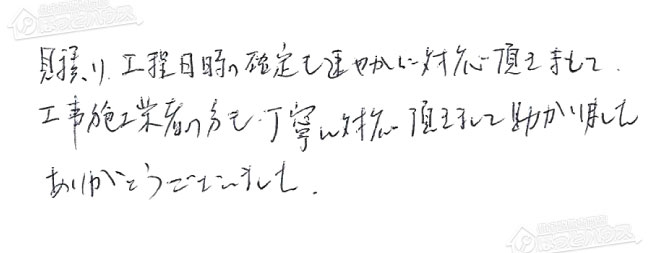 見積り、工程日時の確定も速やかに対応頂きまして、
工事施工業者の方も丁寧に対応頂きまして助かりました
ありがとうございました。